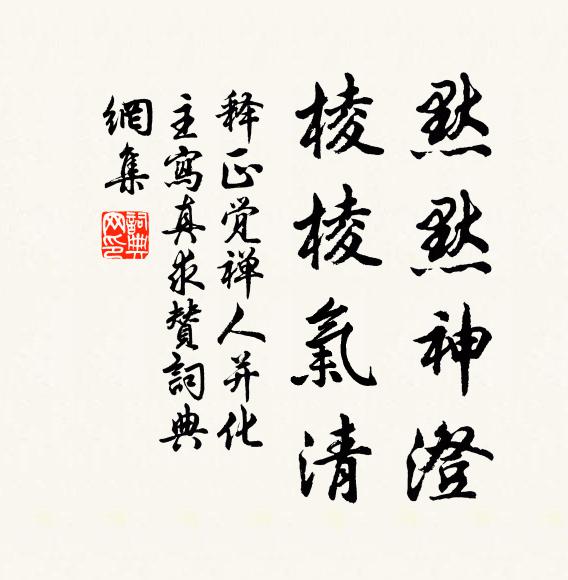 默默神澄
棱棱氣清
释正觉禅人并化
主寫真求赞詞典
網集
詞典网印